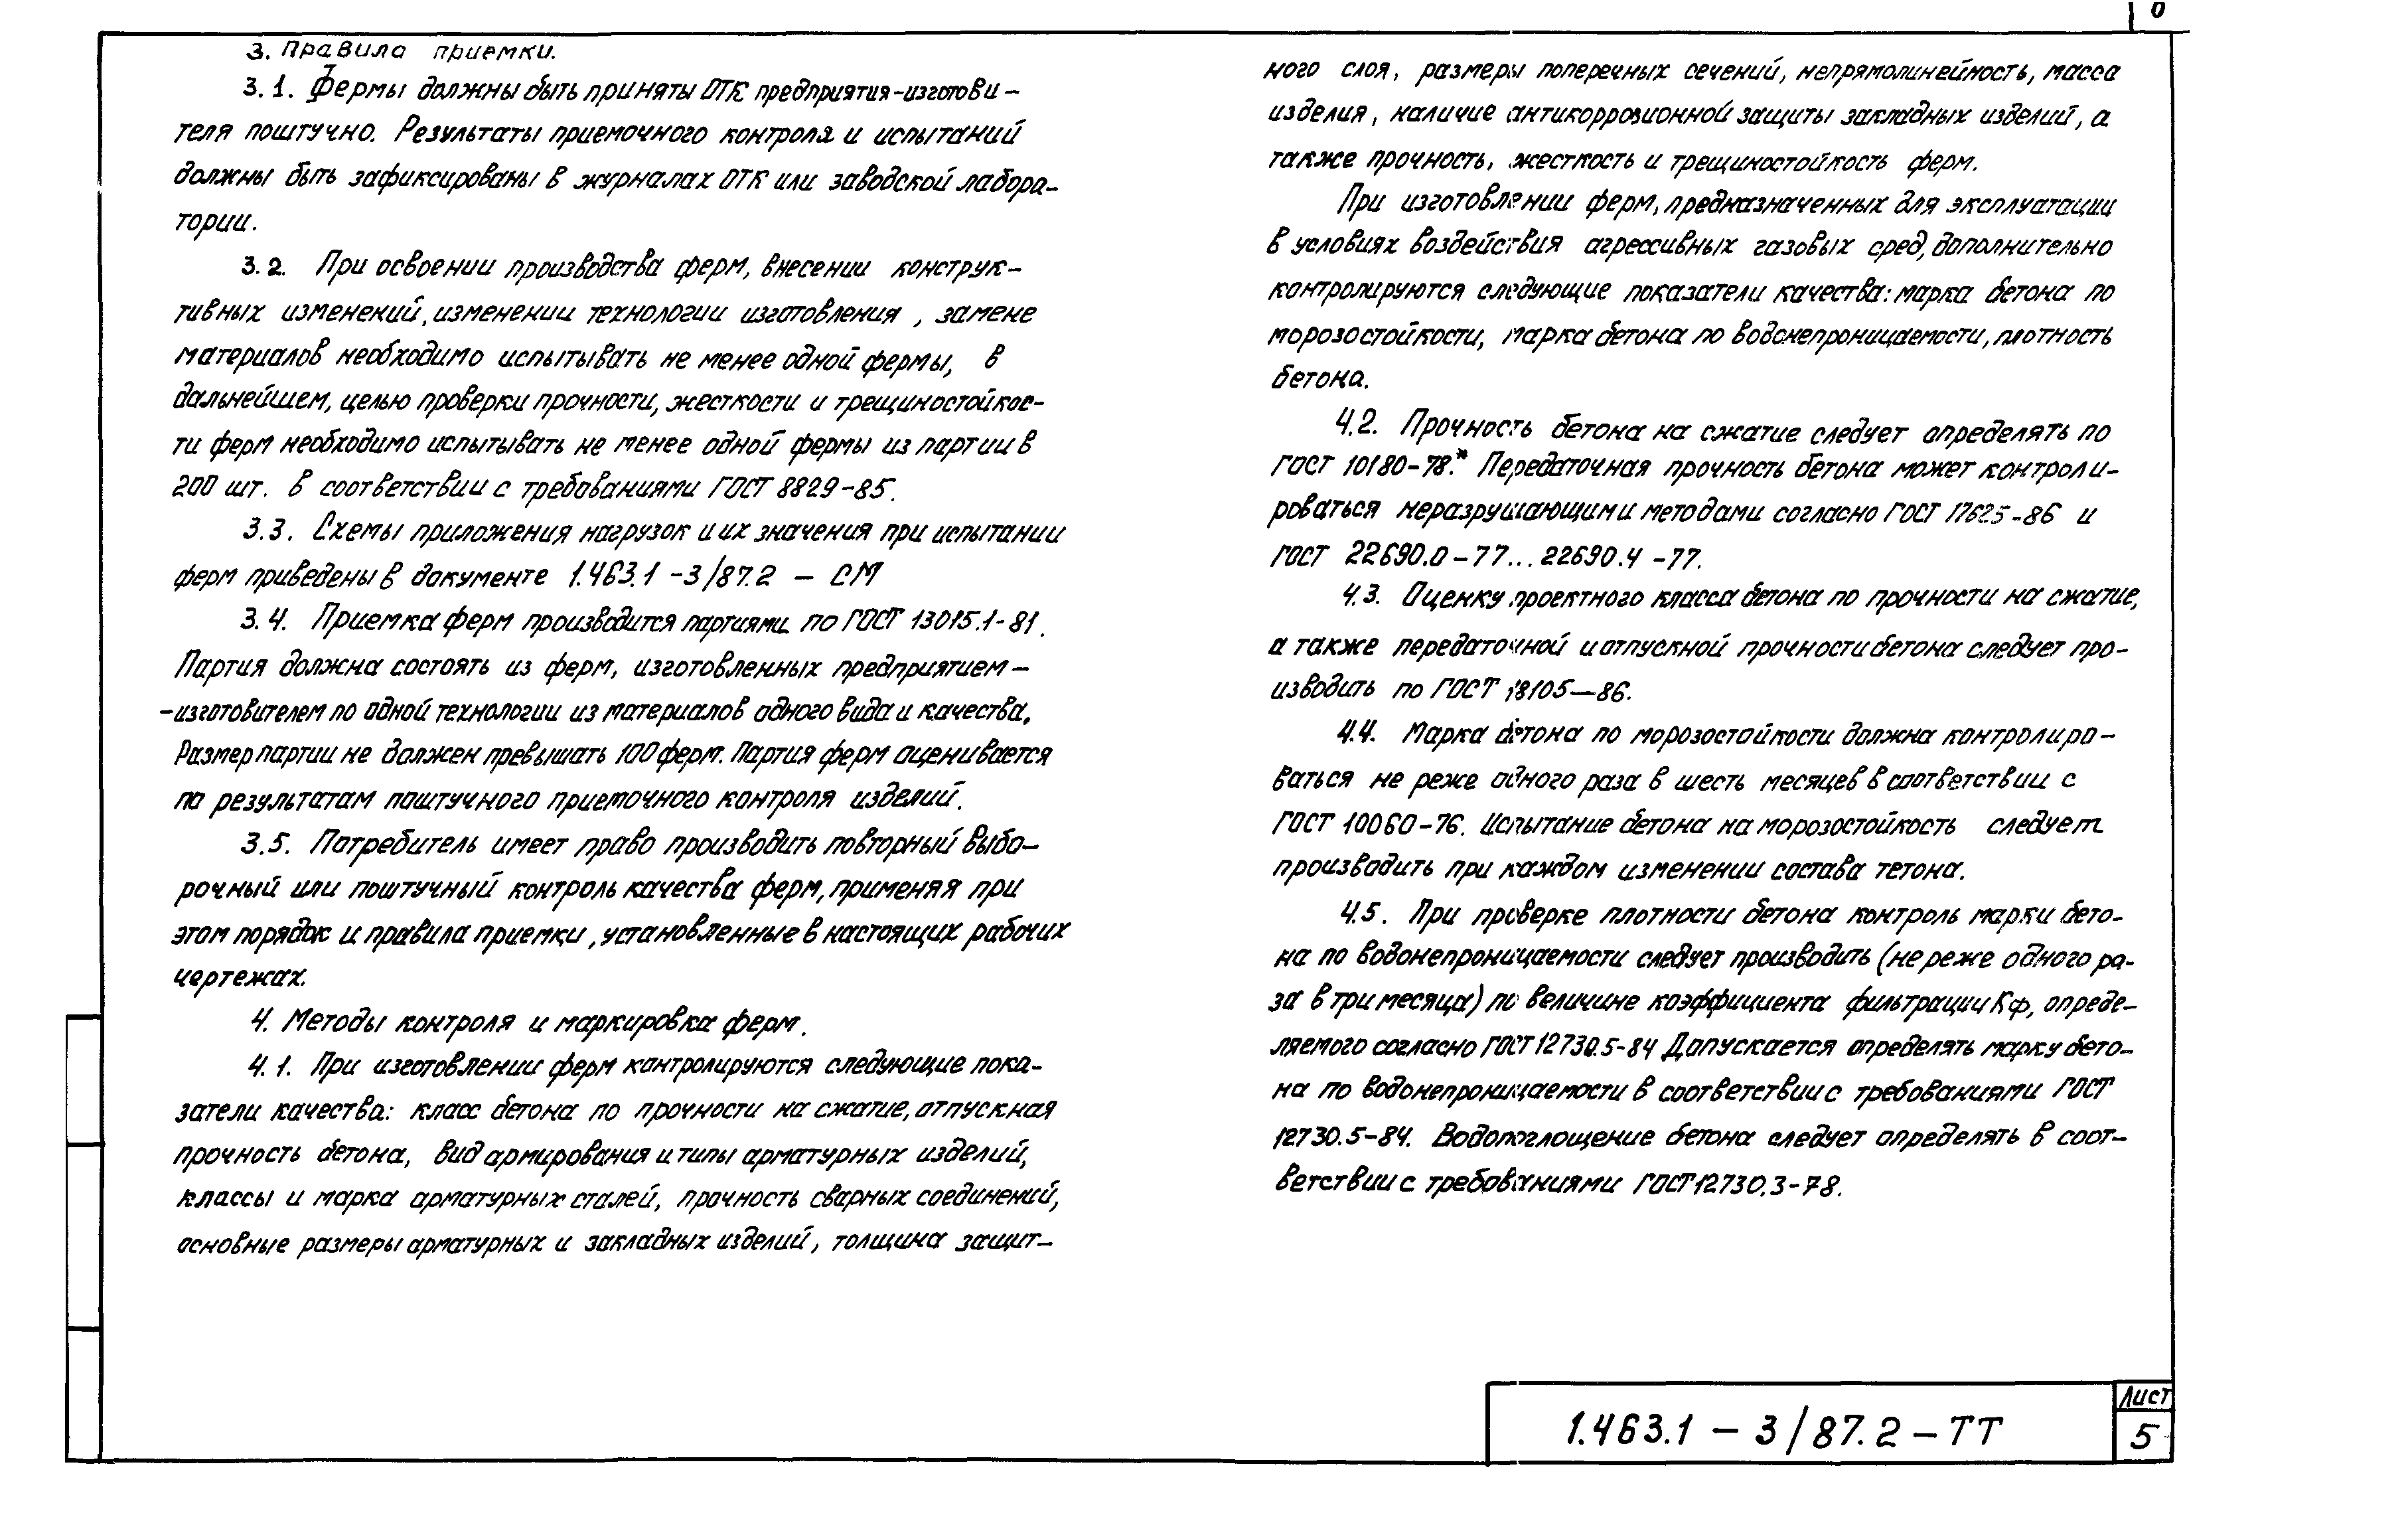 0
3. Правила приемки.
3.1. Фермы должны быть приняты ОТК предприятия-изготови-
теля поштучно. Результаты приемочного контроля и испытаний
должны быть зафиксированы в журналах ОТК или заводской лабора-
тории.
3.2. При освоении производства ферм, внесении конструк-
тивных изменений, изменении технологии изготовления, замене
материалов необходимо испытывать не менее одной фермы, в
дальнейшем, целью проверки прочности, жесткости и трещиностойкос-
ти ферм необходимо испытывать не менее одной фермы из партии в
200 шт. в соответствии с требованиями ГОСТ 8829-85.
3.3. Схемы приложения нагрузок и их значения при испытании
ферм приведены в документе 1.463.1-3/87.2 – СМ
3.4. Приемка ферм производится партиями по ГОСТ 13015.1-81.
Партия должна состоять из ферм, изготовленных предприятием-
-изготовителем по одной технологии из материалов одного вида и качества.
Размер партии не должен превышать 100 ферм. Партия ферм оценивается
по результатам поштучного приемочного контроля изделий.
3.5. Потребитель имеет право производить повторный выбо-
рочный или поштучный контроль качества ферм, применяя при
этом порядок и правила приемки, установленные в настоящих рабочих
чертежах.
4. Методы контроля и маркировка ферм.
4.1. При изготовлении ферм контролируются следующие пока-
затели качества: класс бетона по прочности на сжатие, отпускная
прочность бетона, вид армирования и типы арматурных изделий,
классы и марка арматурных сталей, прочность сварных соединений,
основные размеры арматурных и закладных изделий, толщина защит-
ного слоя, размеры поперечных сечений, непрямолинейность, масса
изделия, наличие антикоррозионной защиты закладных изделий, а
также прочность, жесткость и трещиностойкость ферм.
При изготовлении ферм, предназначенных для эксплуатации
в условиях воздействия агрессивных газовых сред, дополнительно
контролируются следующие показатели качества: марка бетона по
морозостойкости, марка бетона по водонепроницаемости, плотность
бетона.
4.2. Прочность бетона на сжатие следует определять по
ГОСТ 10180-78.* Передаточная прочность бетона может контроли-
роваться неразрушающими методами согласно ГОСТ 17625-86 и
ГОСТ 22690.0-77...22690.4-77.
4.3. Оценку проектного класса бетона по прочности на сжатие,
а также передаточной и отпускной прочности бетона следует про-
изводить по ГОСТ 18105-86.
4.4. Марка бетона по морозостойкости должна контролиро-
ваться не реже одного раза в шесть месяцев в соответствии с
ГОСТ 10060-76. Испытание бетона на морозостойкость следует
производить при каждом изменении состава тетона.
4.5. При проверке плотности бетона контроль марки бето-
на по водонепроницаемости следует производить (не реже одного ра-
за в три месяца) по величине коэффициента фильтрации Кф, опреде-
ляемого согласно ГОСТ 12730.5-84 Допускается определять марку бето-
на по водонепроницаемости в соответствии с требованиями ГОСТ
12730.5-84. Водопоглощение бетона следует определять в соот-
ветствии с требованиями ГОСТ 12730.3-78.
1.463.1 – 3/87.2 – ТТ
Лист
5